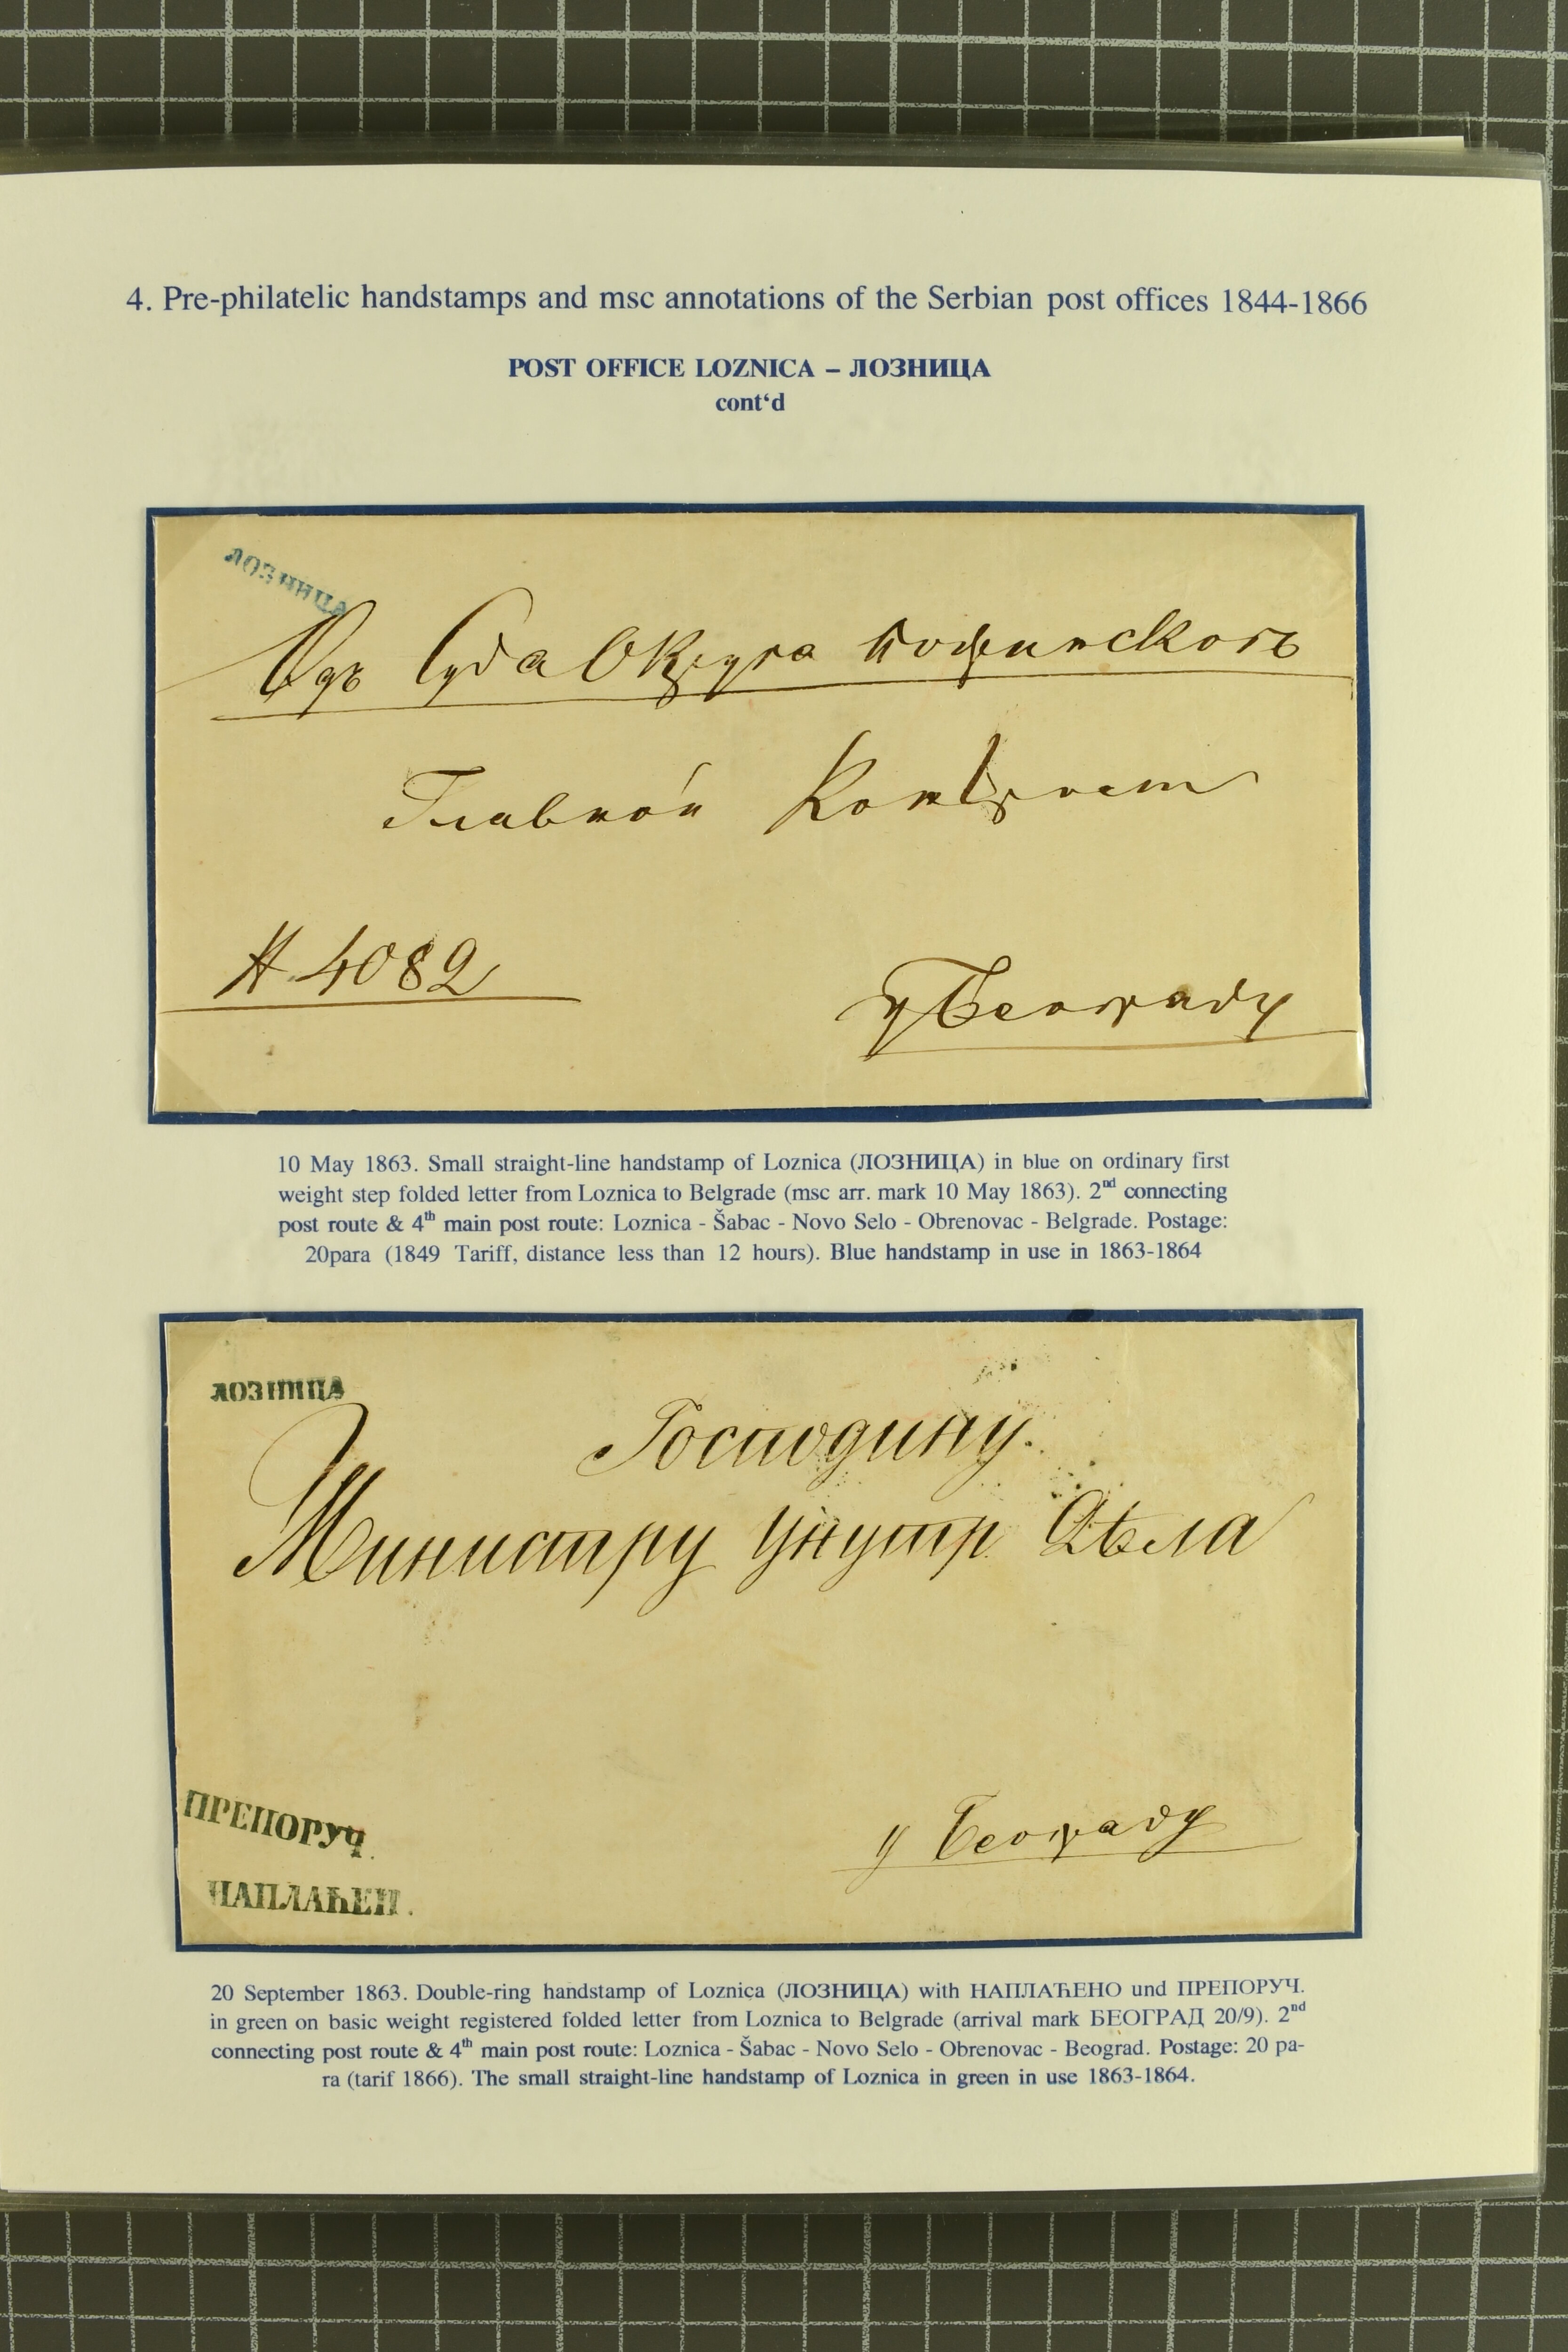 4. Pre-philatelic handstamps and msc annotations of the Serbian post offices 1844-1866
POST OFFICE LOZNICA – ЛОЗНИЦА
cont‘d
ЛОЗНИЦА
Одъ Суда Округа
Главной
N 4082
у Београду
10 May 1863. Small straight-line handstamp of Loznica (ЛОЗНИЦА) in blue on ordinary first
weight step folded letter from Loznica to Belgrade (msc arr. mark 10 May 1863). 2nd connecting
post route & 4th main post route: Loznica - Šabac - Novo Selo - Obrenovac - Belgrade. Postage:
20para (1849 Tariff, distance less than 12 hours). Blue handstamp in use in 1863-1864
ЛОЗНИЦА
Господину.
Министру Унутр. Дѣла
у Београду
ПРЕПОРУЧ.
НАПЛАЋЕН.
20 September 1863. Double-ring handstamp of Loznica (ЛОЗНИЦА) with НАПЛАЋЕНО und ПРЕПОРУЧ.
in green on basic weight registered folded letter from Loznica to Belgrade (arrival mark БЕОГРАД 20/9). 2nd
connecting post route & 4th main post route: Loznica - Šabac - Novo Selo - Obrenovac - Beograd. Postage: 20 pa-
ra (tarif 1866). The small straight-line handstamp of Loznica in green in use 1863-1864.